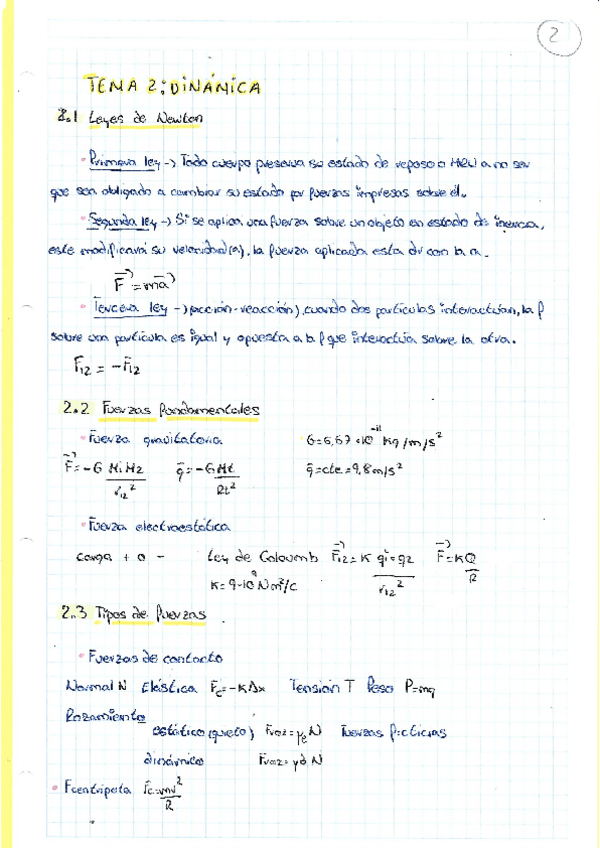 2
TEMA 2: DINÁMICA
2.1 Leyes de Newton
· Primera ley -> Todo cuerpo preserva su estado de reposo o MRU a no ser
que sea obligado a cambiar su estado por fuerzas impresas sobre él.
· Segunda ley -> Si se aplica una fuerza sobre un objeto en estado de inercia,
este modificará su velocidad (a), la fuerza aplicada esta dv con la a.
F⃗ = ma⃗
· Tercera ley -> (acción-reacción), cuando dos partículas interactúan, la f
sobre una partícula es igual y opuesta a la f que interactúa sobre la otra.
F12 = -F12
2.2 Fuerzas fundamentales
· Fuerza gravitatoria G=6,67·10^-11 Kg/m/s²
F⃗=-G M1M2/r12² g⃗=-GMt/Rt² g⃗=cte=9,8m/s²
· Fuerza electroestática
carga + o - Ley de Coloumb F⃗12=K q1=q2/r12² F⃗=KQ/R
K=9·10^9 Nm²/C
2.3 Tipos de fuerzas
· Fuerzas de contacto
Normal N Elástica Fc=-KΔx Tensión T Peso P=mg
Rozamiento
estático (quieto) Froz=μe N Fuerzas ficticias
dinámico Froz=μd N
· Fcentrípeta Fc=mv²/R